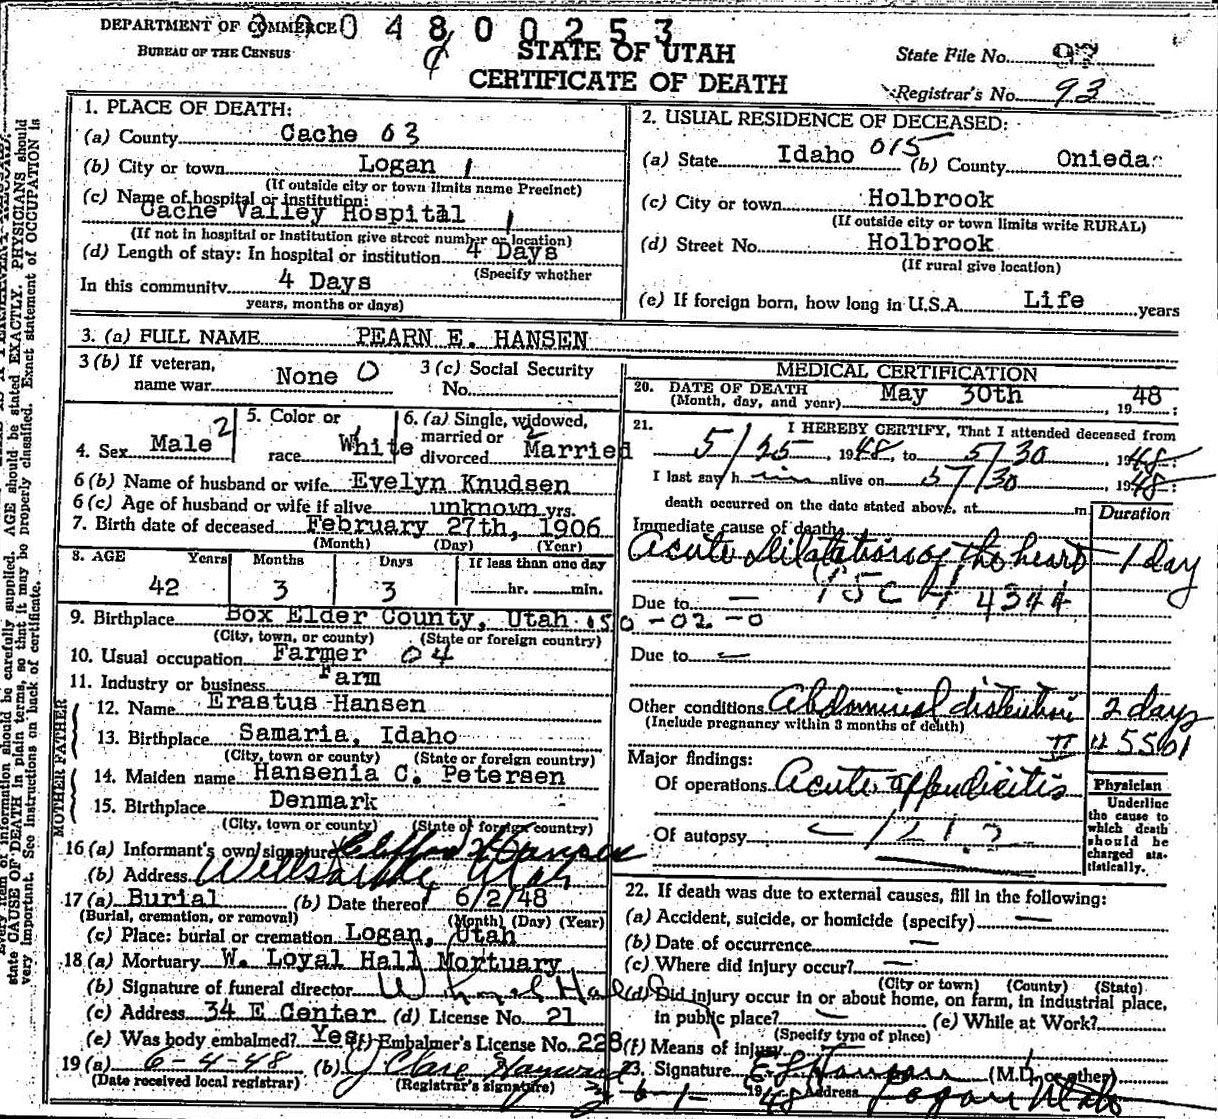 DEPARTMENT OF COMMERCE 0 4 8 0 0 2 5 3
BUREAU OF THE CENSUS
STATE OF UTAH
CERTIFICATE OF DEATH
State File No. 92
Registrar's No. 93
1. PLACE OF DEATH:
(a) County Cache 03
(b) City or town Logan 1
(If outside city or town limits name Precinct)
(c) Name of hospital or institution:
Cache Valley Hospital 1
(If not in hospital or Institution give street number or location)
(d) Length of stay: In hospital or institution 4 Days
(Specify whether
In this community 4 Days
years, months or days)
2. USUAL RESIDENCE OF DECEASED:
(a) State Idaho 015 (b) County Onieda
(c) City or town Holbrook
(If outside city or town limits write RURAL)
(d) Street No. Holbrook
(If rural give location)
(e) If foreign born, how long in U.S.A. Life years
3. (a) FULL NAME PEARN E. HANSEN
3 (b) If veteran,
name war None 0
3 (c) Social Security
No.
4. Sex Male 2
5. Color or
race White
6. (a) Single, widowed,
married or
divorced Married 2
6 (b) Name of husband or wife Evelyn Knudsen
6 (c) Age of husband or wife if alive unknown yrs.
7. Birth date of deceased February 27th, 1906
(Month) (Day) (Year)
8. AGE Years Months Days If less than one day
42 3 3 hr. min.
9. Birthplace Box Elder County, Utah
(City, town, or county) (State or foreign country)
10. Usual occupation Farmer 04
11. Industry or business Farm
FATHER
12. Name Erastus Hansen
13. Birthplace Samaria, Idaho
(City, town or county) (State or foreign country)
MOTHER
14. Maiden name Hansenia C. Petersen
15. Birthplace Denmark
(City, town or county) (State of foreign country)
16 (a) Informant's own signature Hansen
(b) Address Wellsville, Utah
17 (a) Burial (b) Date thereof 6/2/48
(Burial, cremation, or removal) (Month) (Day) (Year)
(c) Place: burial or cremation Logan, Utah
18 (a) Mortuary W. Loyal Hall Mortuary
(b) Signature of funeral director W Loyal Hall
(c) Address 34 E Center (d) License No. 21
(e) Was body embalmed? Yes (f) Embalmer's License No. 228
19 (a) 6-4-48 (b)
(Date received local registrar) (Registrar's signature)
MEDICAL CERTIFICATION
20. DATE OF DEATH
(Month, day, and year) May 30th, 1948:
21. I HEREBY CERTIFY, That I attended deceased from
5/25, 1948, to 5/30, 1948:
I last say him alive on 5/30, 1948:
death occurred on the date stated above, at m
Duration
Immediate cause of death
Acute dilatation of the heart — 1 day
Due to —
Due to —
Other conditions Abdominal distention 2 days
(Include pregnancy within 3 months of death)
Major findings:
Of operations Acute appendicitis
Of autopsy —
Physician
Underline
the cause to
which death
should be
charged sta-
tistically.
22. If death was due to external causes, fill in the following:
(a) Accident, suicide, or homicide (specify) —
(b) Date of occurrence —
(c) Where did injury occur? —
(City or town) (County) (State)
(d) Did injury occur in or about home, on farm, in industrial place,
in public place? — (e) While at Work?
(Specify type of place)
(f) Means of injury
23. Signature (M.D. or other)
6-1-1948 Address Logan Utah